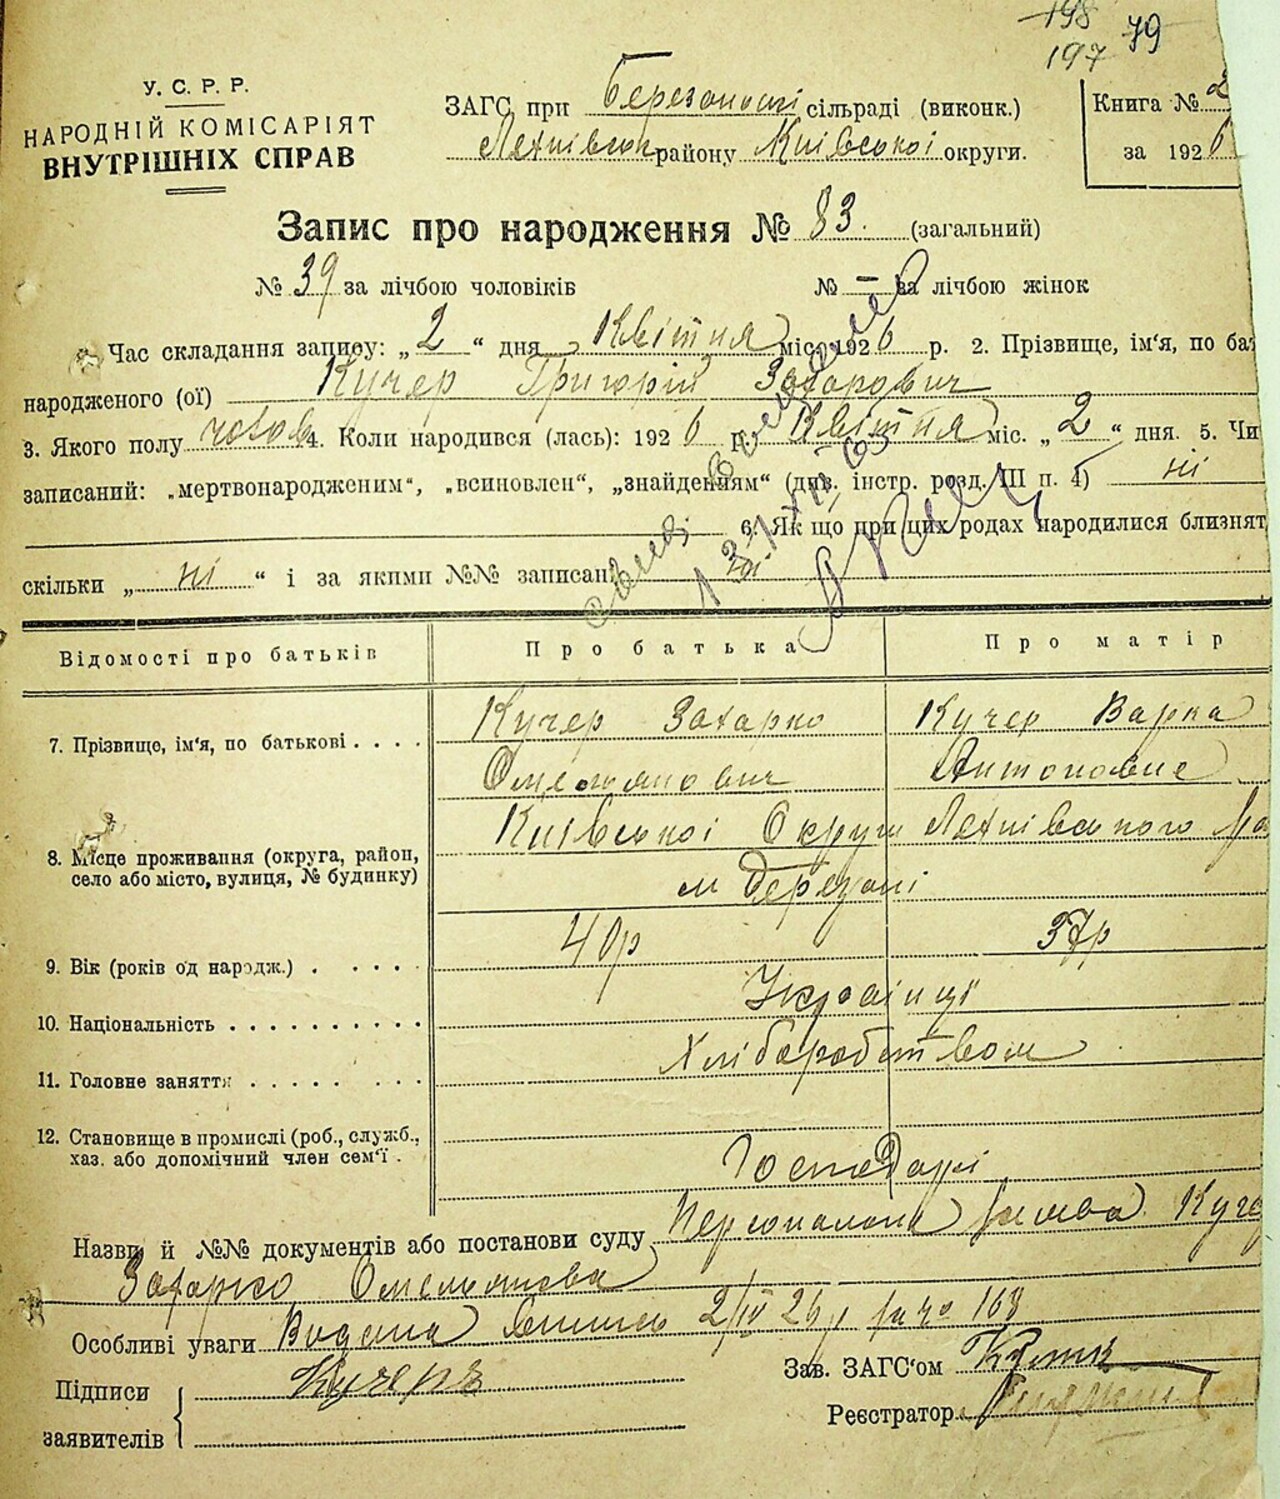 198
197 79
У. С. Р. Р.
НАРОДНІЙ КОМІСАРІЯТ
ВНУТРІШНІХ СПРАВ
ЗАГС при сільраді (виконк.)
району Київської округи.
Книга № 2
за 1926
Запис про народження № 83. (загальний)
№ 39 за лічбою чоловіків № — за лічбою жінок
Час складання запису: „ 2 “ дня Квітня міс. 1926 р. 2. Прізвище, ім'я, по бат
народженого (ої) Кучер Григорій Захарович
3. Якого полу чолов 4. Коли народився (лась): 1926 р. Квітня міс. „ 2 “ дня. 5. Чи
записаний: „мертвонародженим“, „всиновлен“, „знайденням“ (див. інстр. розд. III п. 4) ні
6. Як що при цих родах народилися близнят
скільки „ ні “ і за якими №№ записані
Відомості про батьків Про батька Про матір
7. Прізвище, ім'я, по батькові . . . . Кучер Захарко Кучер Варка
Омелянович Антоновна
8. Місце проживання (округа, район, село або місто, вулиця, № будинку) Київської Округи
м Березані
9. Вік (років од народж.) . . . . . 40р 37р
10. Національність . . . . . . . . . . Українці
11. Головне заняття . . . . . . . Хліборобством
12. Становище в промислі (роб., служб.,
хаз. або допомічний член сем'ї . Господарі
Назви й №№ документів або постанови суду Кучер
Захарко Омелянова
Особливі уваги Видана випись 2/IV 26 р за № 168
Підписи Кучеръ
заявителів
Зав. ЗАГС'ом
Реєстратор